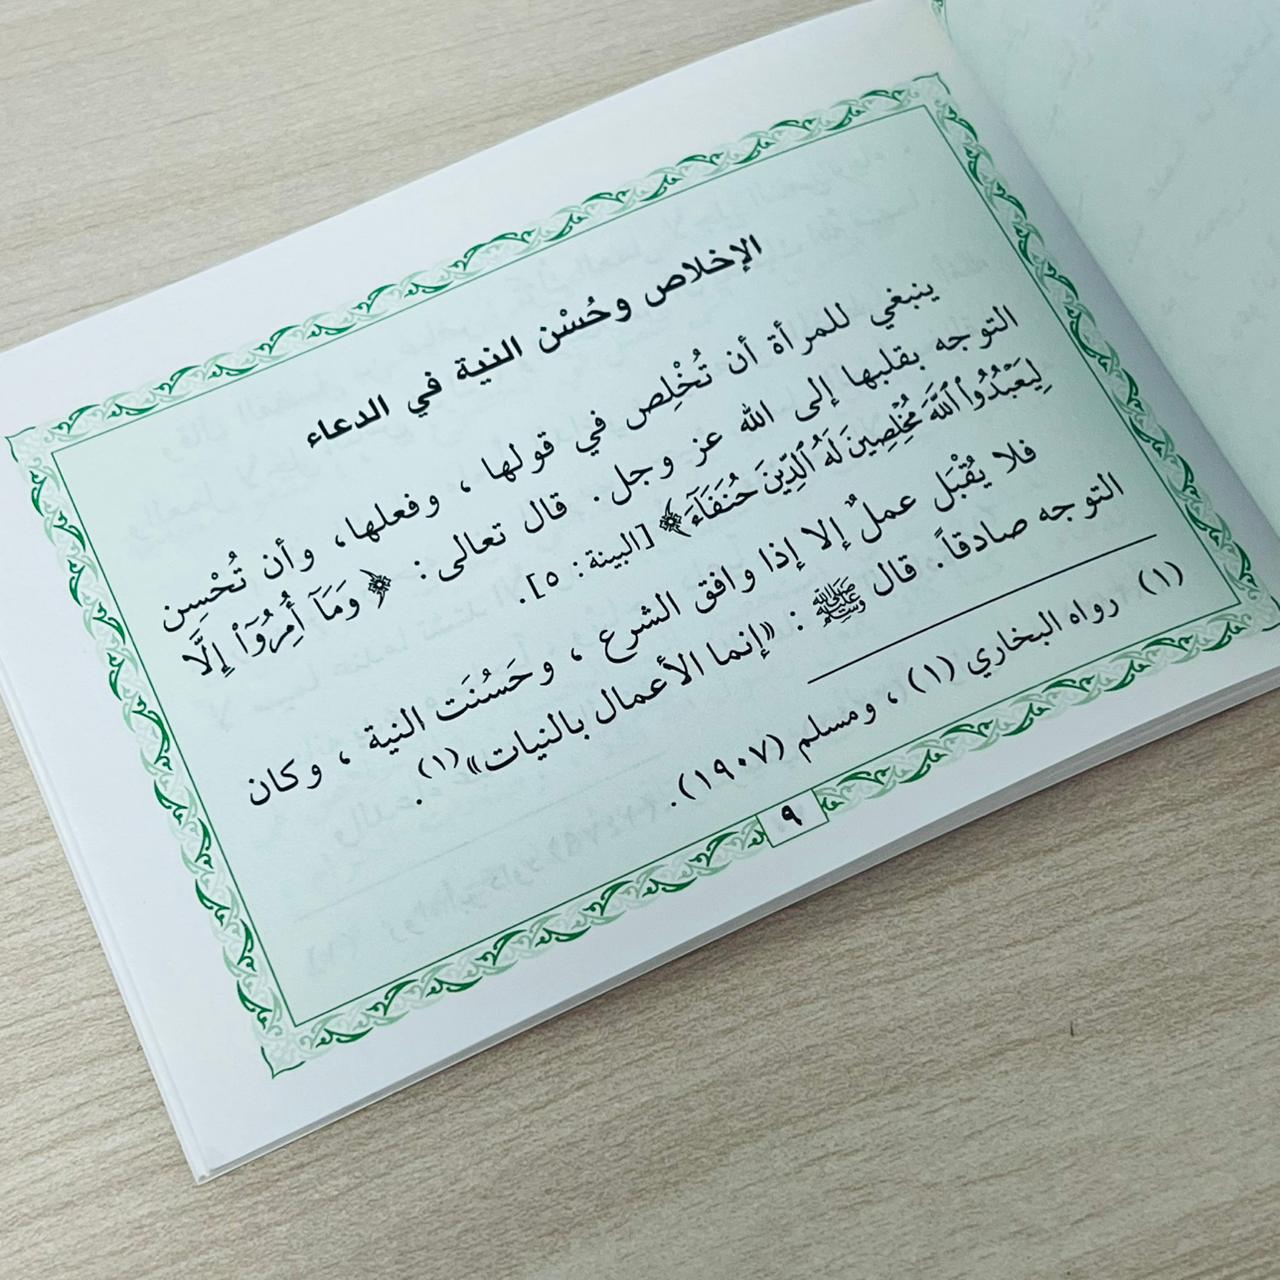 الإخلاص وحُسْن النية في الدعاء
ينبغي للمرأة أن تُخْلِص في قولها ، وفعلها، وأن تُحْسِن
التوجه بقلبها إلى الله عز وجل. قال تعالى: ﴿وَمَآ أُمِرُوٓا۟ إِلَّا
لِيَعْبُدُوا۟ ٱللَّهَ مُخْلِصِينَ لَهُ ٱلدِّينَ حُنَفَآءَ﴾ [البينة: ٥].
فلا يُقْبَل عملٌ إلا إذا وافق الشرع ، وحَسُنَت النية ، وكان
التوجه صادقاً. قال ﷺ : «إنما الأعمال بالنيات»(١).
(١) رواه البخاري (١) ، ومسلم (١٩٠٧).
٩